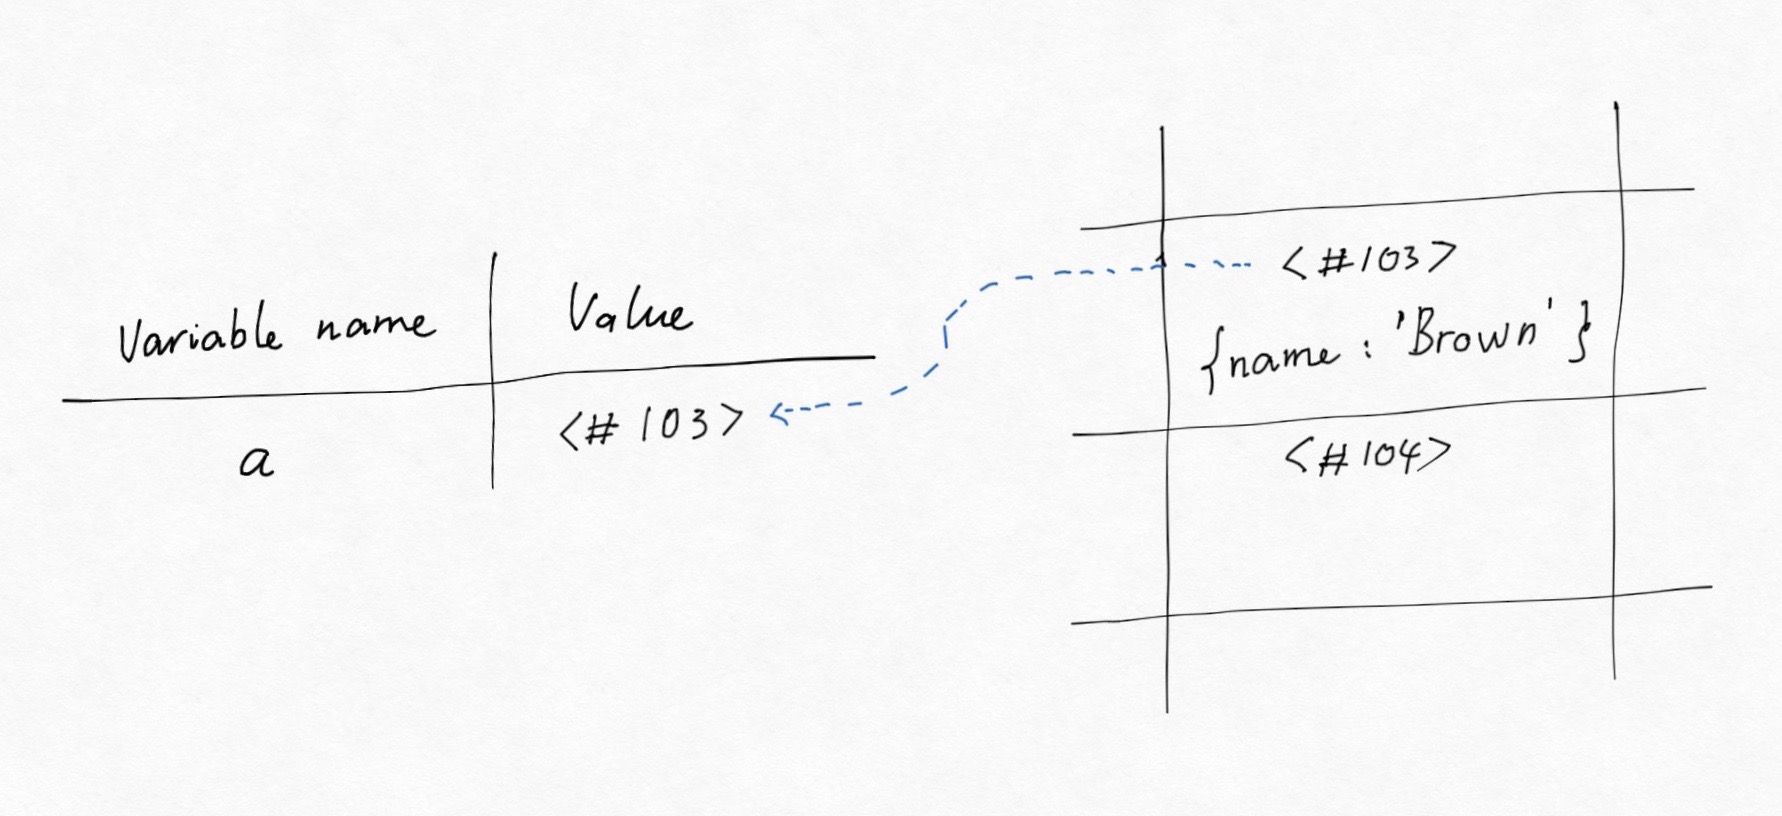 Variable name
Value
a
<# 103>
<#103>
{name : 'Brown' }
<#104>